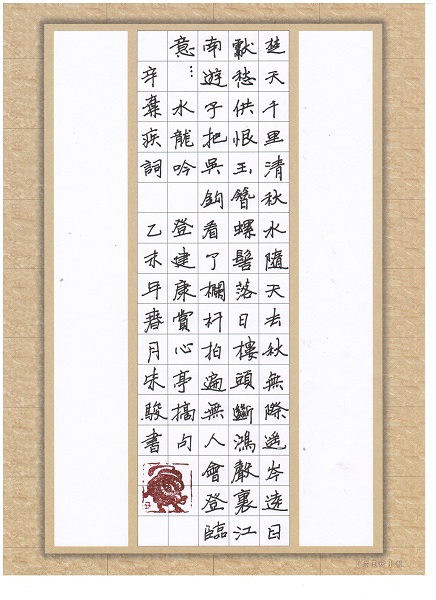 楚天千里清秋水隨天去秋無際遙岑遠目
獻愁供恨玉簪螺髻落日樓頭斷鴻聲裏江
南遊子把吳鈎看了欄杆拍遍無人會登臨
意… 水龍吟 登建康賞心亭摘句
辛棄疾詞 乙未年春月朱駿書